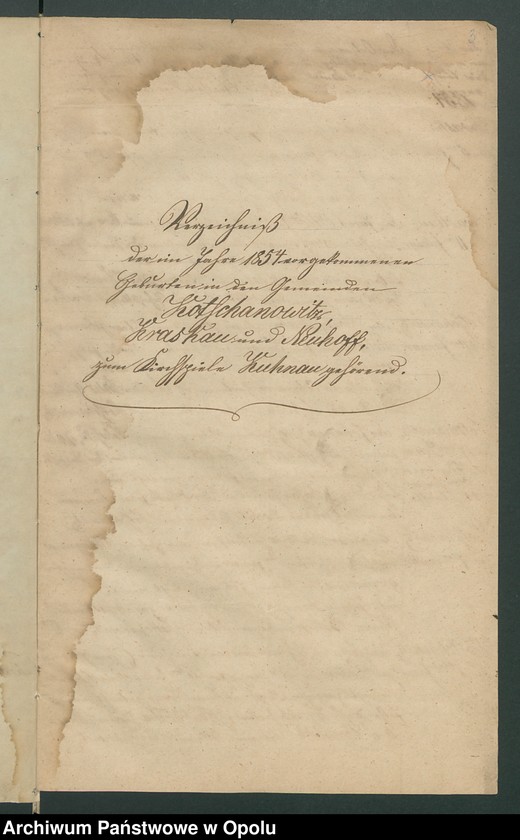 Verzeichniß
der im Jahre 1854 vorgekommenen
Geburten in den Gemeinden
Kotschanowitz,
Kraskau und Neuhoff,
zum Kirchspiele Kuhnau gehörend.
Archiwum Państwowe w Opolu